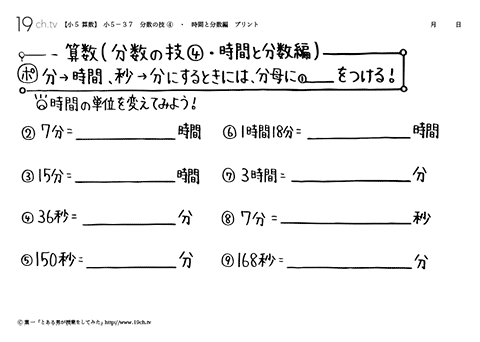 19ch.tv 【小5 算数】 小5－37 分数の技④ ・ 時間と分数編 プリント 月 日
算数(分数の技④・時間と分数編)
ポ 分→時間、秒→分にするときには、分母に①___をつける!
時間の単位を変えてみよう!
②7分=___時間 ⑥1時間18分=___時間
③15分=___時間 ⑦3時間=___分
④36秒=___分 ⑧7分=___秒
⑤150秒=___分 ⑨168秒=___分
Ⓒ 葉一「とある男が授業をしてみた」http://www.19ch.tv